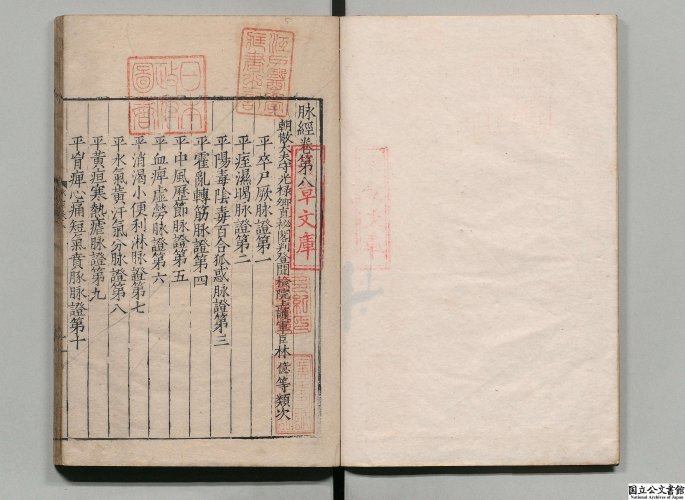 脉經卷第八
朝散大夫守光祿卿直秘閣判登聞檢院上護軍臣林億等類次
平卒尸厥脉證第一
平痓濕暍脉證第二
平陽毒陰毒百合狐惑脉證第三
平霍亂轉筋脉證第四
平中風歷節脉證第五
平血痺虛勞脉證第六
平消渴小便利淋脉證第七
平水氣黃汗氣分脉證第八
平黃疸寒熱瘧脉證第九
平胷痺心痛短氣賁豚脉證第十
日本
政府
圖書
文庫
国立公文書館
National Archives of Japan